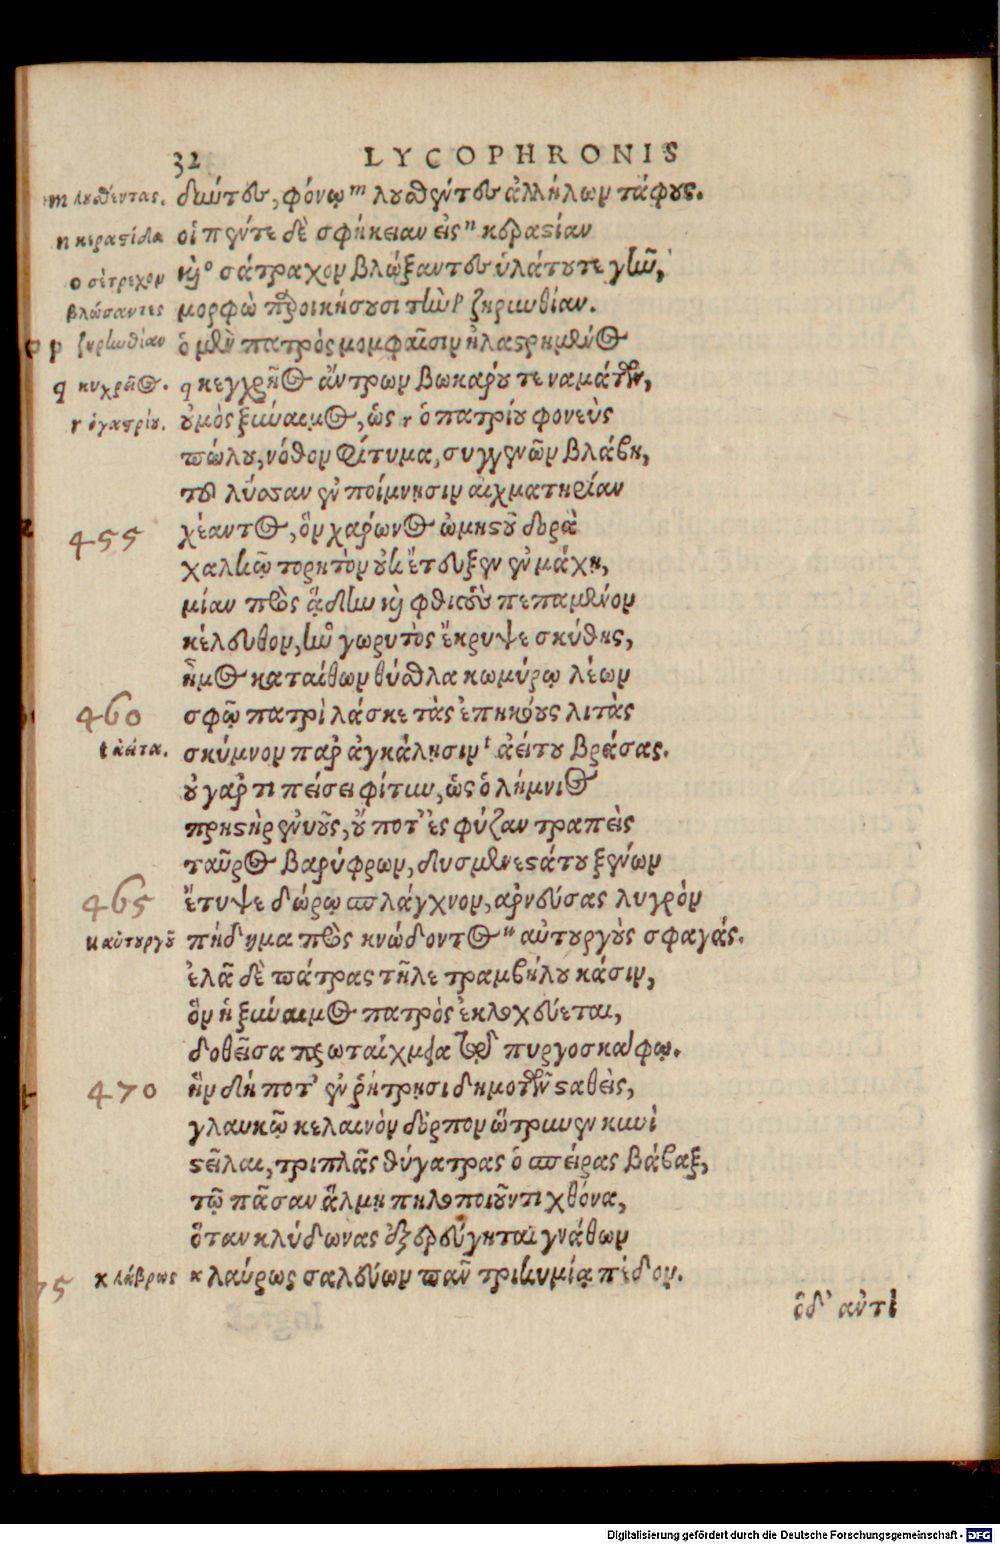 32 LYCOPHRONIS
m λυθέντας. δύντες, φόνῳ m λουθέντες ἀλλήλων τάφους.
n κεραστίδα οἱ πέντε δὲ σφήκειαν εἰς n κεραστίαν
ο σέτραχον καὶ ο σάτραχον βλώξαντες ὑλάτου τε γῆν,
βλώσαντες μορφὼ προικήσουσι τὴν p ζηρινθίαν.
p ζηρυνθίαν ὁ μὲν πατρὸς μομφαῖσιν ἠλαστρημένος
q κυχρεῖος. q κεγχρῆος ἄντρων βωκάρου τε ναμάτων,
r ὀγατρίου. οὑμὸς ξύναιμος, ὡς r ὁ πατρίου φονεὺς
πώλου, νόθον φίτυμα, συγγενῶν βλάβη,
τοῦ λύσσαν ἐν ποίμνησιν αἰχματηρίαν
455 χέαντος, ὃν χαρώνος ὠμηστοῦ δορὰ
χαλκῷ τορητὸν οὐκ ἔτευξεν ἐν μάχῃ,
μίαν πρὸς ᾅδην καὶ φθιτοὺς πεπαμένον
κέλευθον, ἣν γωρυτὸς ἔκρυψε σκύθης,
ἦμος καταίθων θύσθλα κωμύρῳ λέων
460 σφῷ πατρὶ λάσκε τὰς ἐπηκόους λιτὰς
t αἰήτα. σκύμνον παρ᾽ ἀγκάλησιν t ἀείτου βράσας.
οὐ γάρ τι πείσει φίτυν, ὡς ὁ λήμνιος
πρηστὴρ ἐνυοῦς, οὔ ποτ᾽ ἐς φύζαν τραπεὶς
ταῦρος βαρύφρων, δυσμενεστάτου ξένων
465 ἔτυψε δώρῳ σπλάγχνον, ἀρνεύσας λυγρὸν
u αὐτουργοῦ πήδημα πρὸς κνώδοντος u αὐτουργοὺς σφαγάς.
ἐλᾷ δὲ πάτρας τῆλε τραμβήλου κάσιν,
ὃν ἡ ξύναιμος πατρὸς ἐκλοχεύεται,
δοθεῖσα πρωταίχμεια τῷ πυργοσκάφῳ.
470 ἣν δή ποτ᾽ ἐν ῥήτρησι δημοτῶν σταθεὶς,
γλαυκῷ κελαινὸν δόρπον ὤτρυνεν κυνὶ
στεῖλαι, τριπλᾶς θύγατρας ὁ σπείρας βάβαξ,
τῷ πᾶσαν ἅλμῃ πηλοποιοῦντι χθόνα,
ὅταν κλύδωνας ἐξερεύγηται γνάθων
75 x λάβρως x λαύρως σαλεύων πᾶν τρικυμίᾳ πέδον.
ὁδ᾽ αὐτὶ
Digitalisierung gefördert durch die Deutsche Forschungsgemeinschaft - DFG